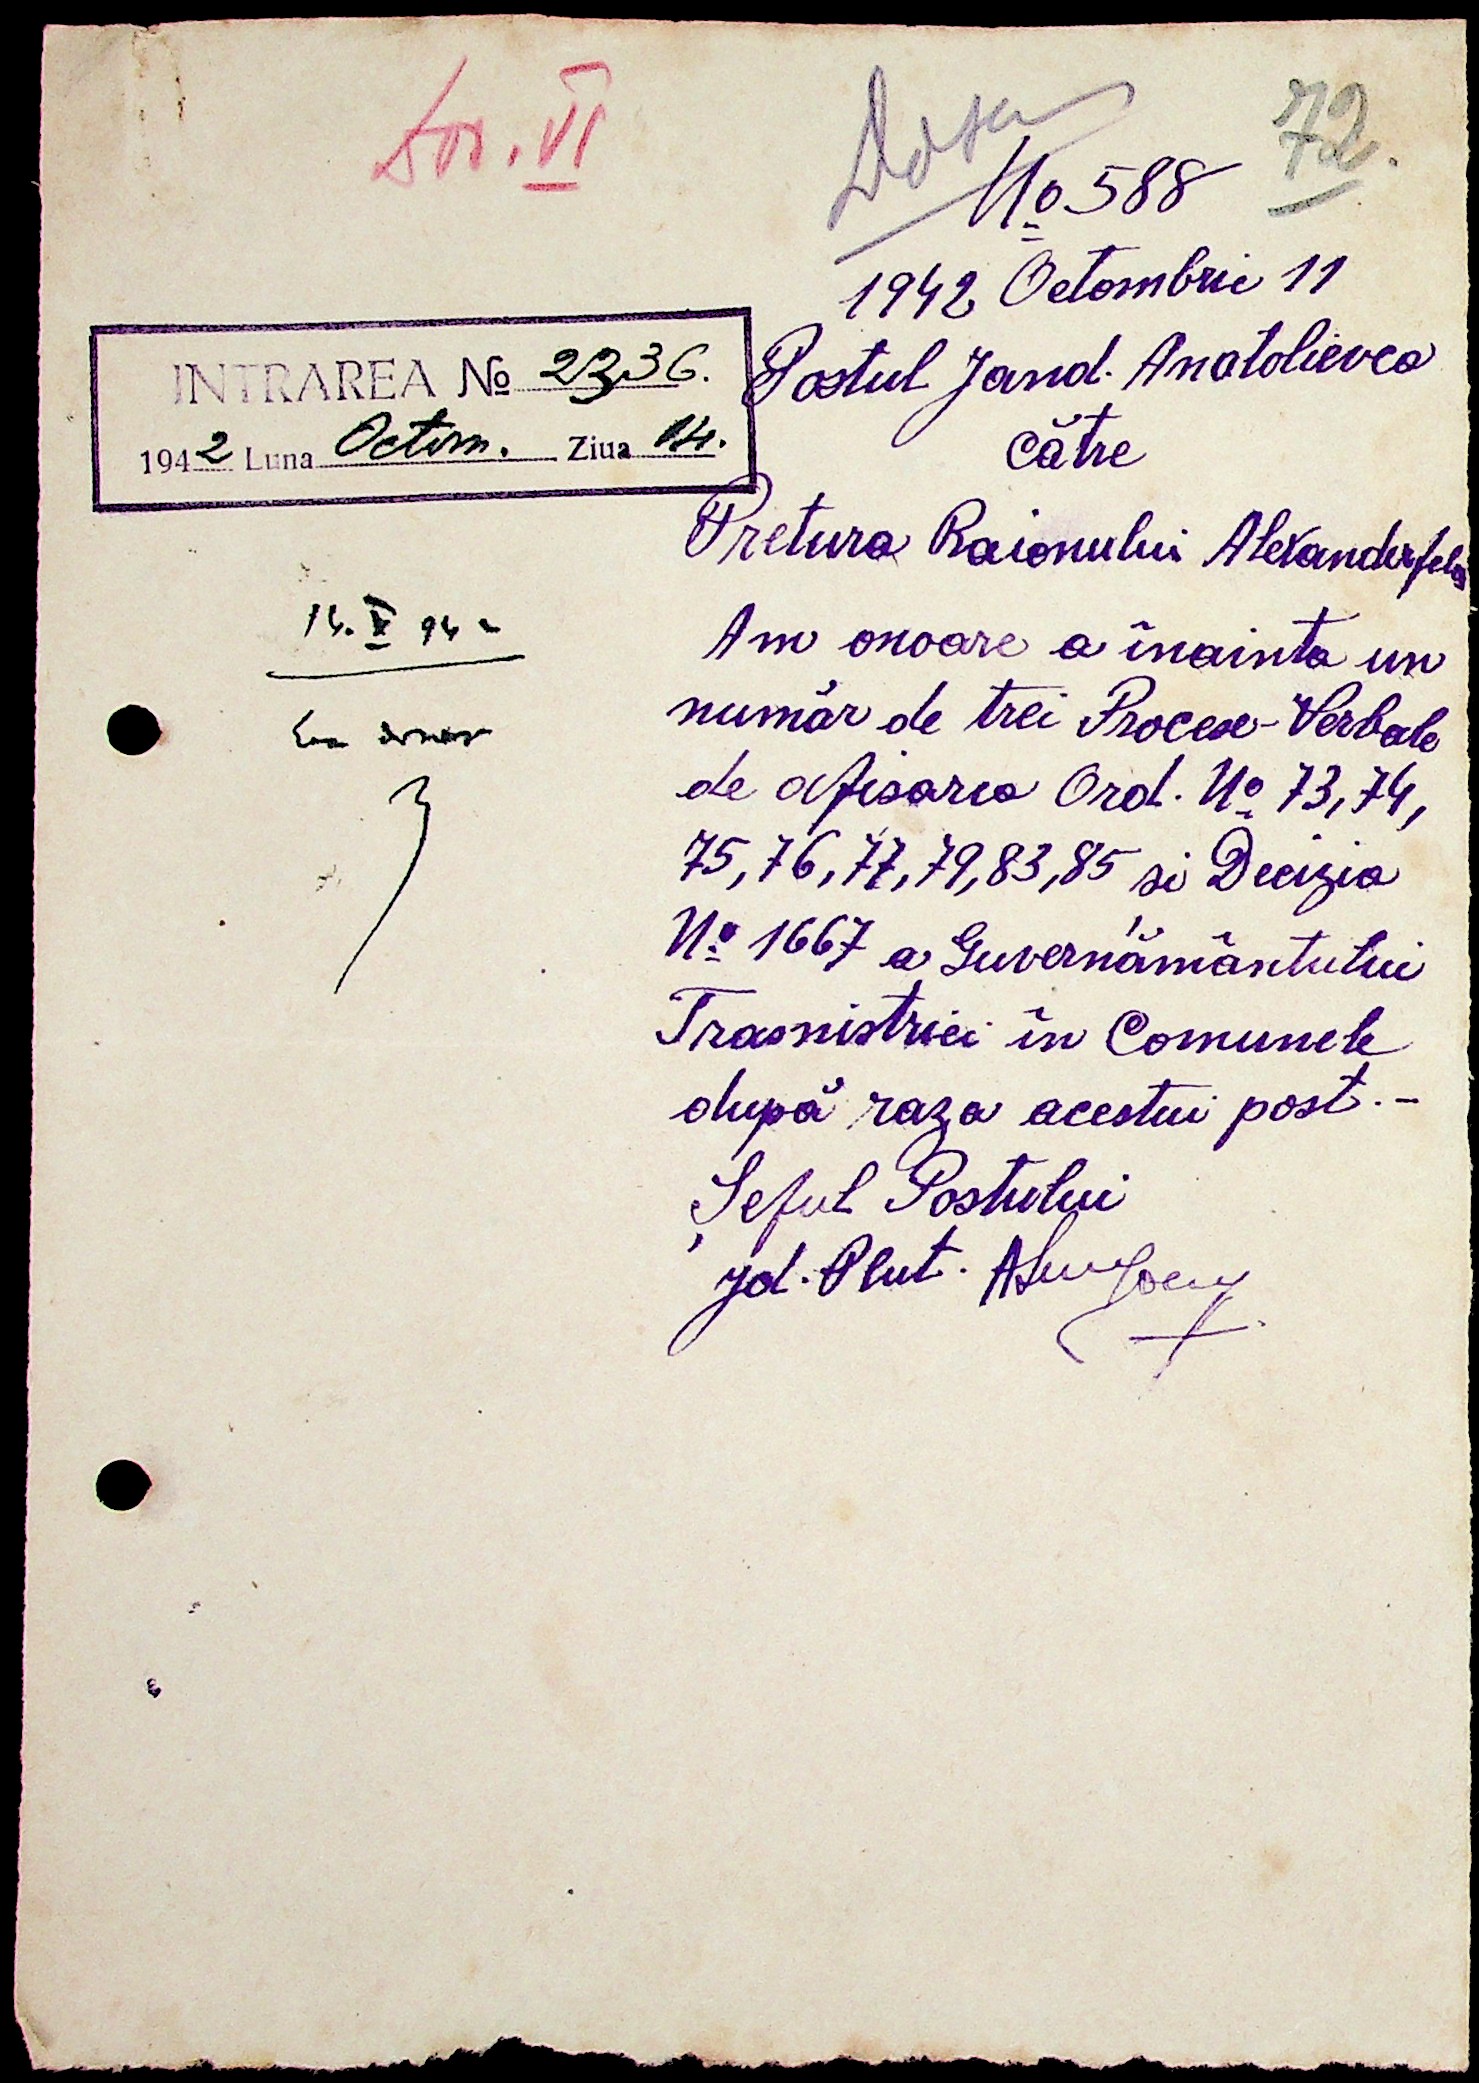 72.
No 588
1942 Octombrie 11
INTRAREA No 2336.
1942 Luna Octom. Ziua 14.
Postul Jand. Anatolievca
Către
Pretura Raionului Alexanderfeld
14. X 942
La dosar
Am onoare a înainta un
număr de trei Procese-Verbale
de afisarea Ord. No 73, 74,
75, 76, 77, 79, 83, 85 si Decizia
No 1667 a Guvernământului
Trasnistriei în Comunele
după raza acestui post.-
Șeful Postului
Jd. Plut.